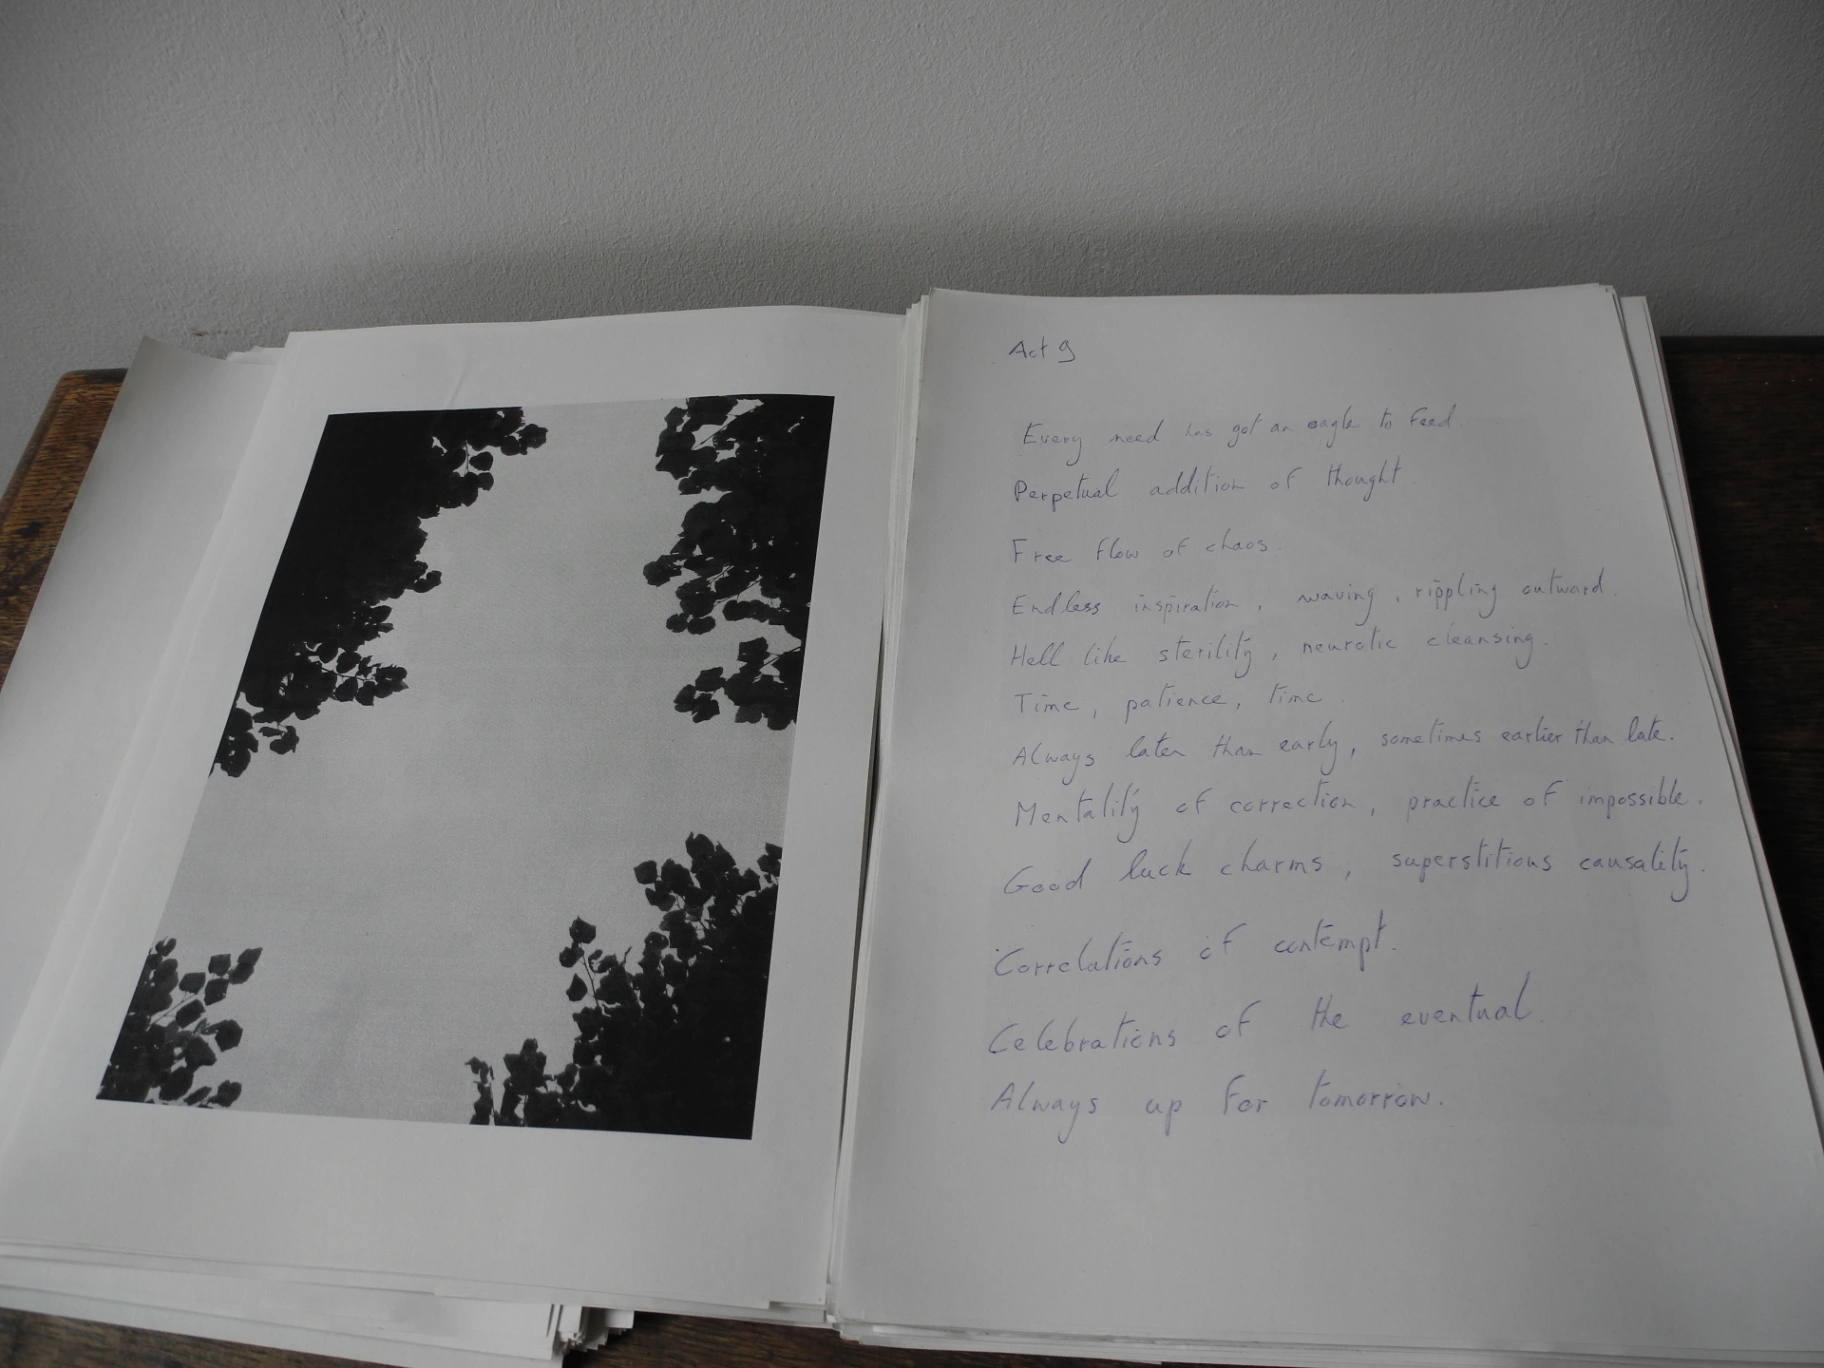 Act 9
Every need has got an eagle to feed.
Perpetual addition of thought.
Free flow of chaos.
Endless inspiration, waving, rippling outward.
Hell like sterility, neurotic cleansing.
Time, patience, time.
Always later than early, sometimes earlier than late.
Mentality of correction, practice of impossible.
Good luck charms, superstitious causality.
Correlations of contempt.
Celebrations of the eventual.
Always up for tomorrow.